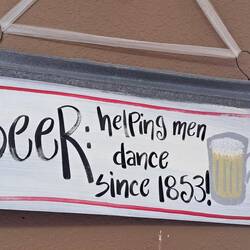 Beer: helping men
dance
since 1853!